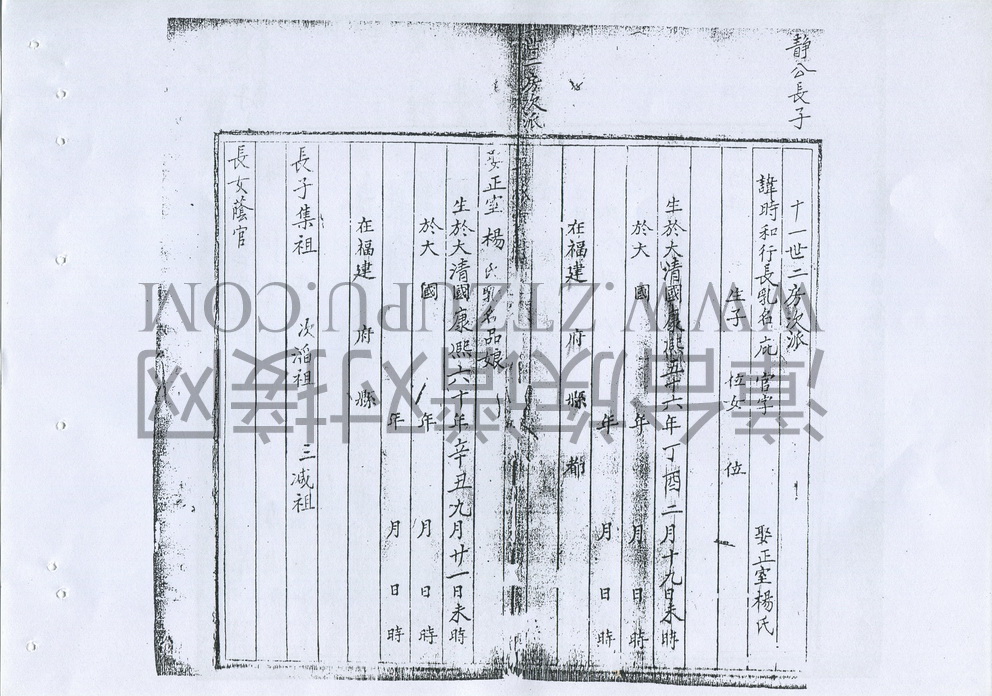 靜公長子
十一世二房次派
諱時和行長乳名庇 官字 娶正室楊氏
生子 位女 位
生於大清國康熙五十六年丁酉二月十九日未時
於大 國 年 月 日 時
年 月 日 時
在福建 府 縣 都
房次派
娶正室楊氏乳名品娘
生於大清國康熙六十年辛丑九月廿一日未時
於大 國 年 月 日 時
年 月 日 時
在福建 府 縣
長子集祖 次滔祖 三減祖
長女蔭官
WWW.ZTZUPU.COM
漳台族谱对接网